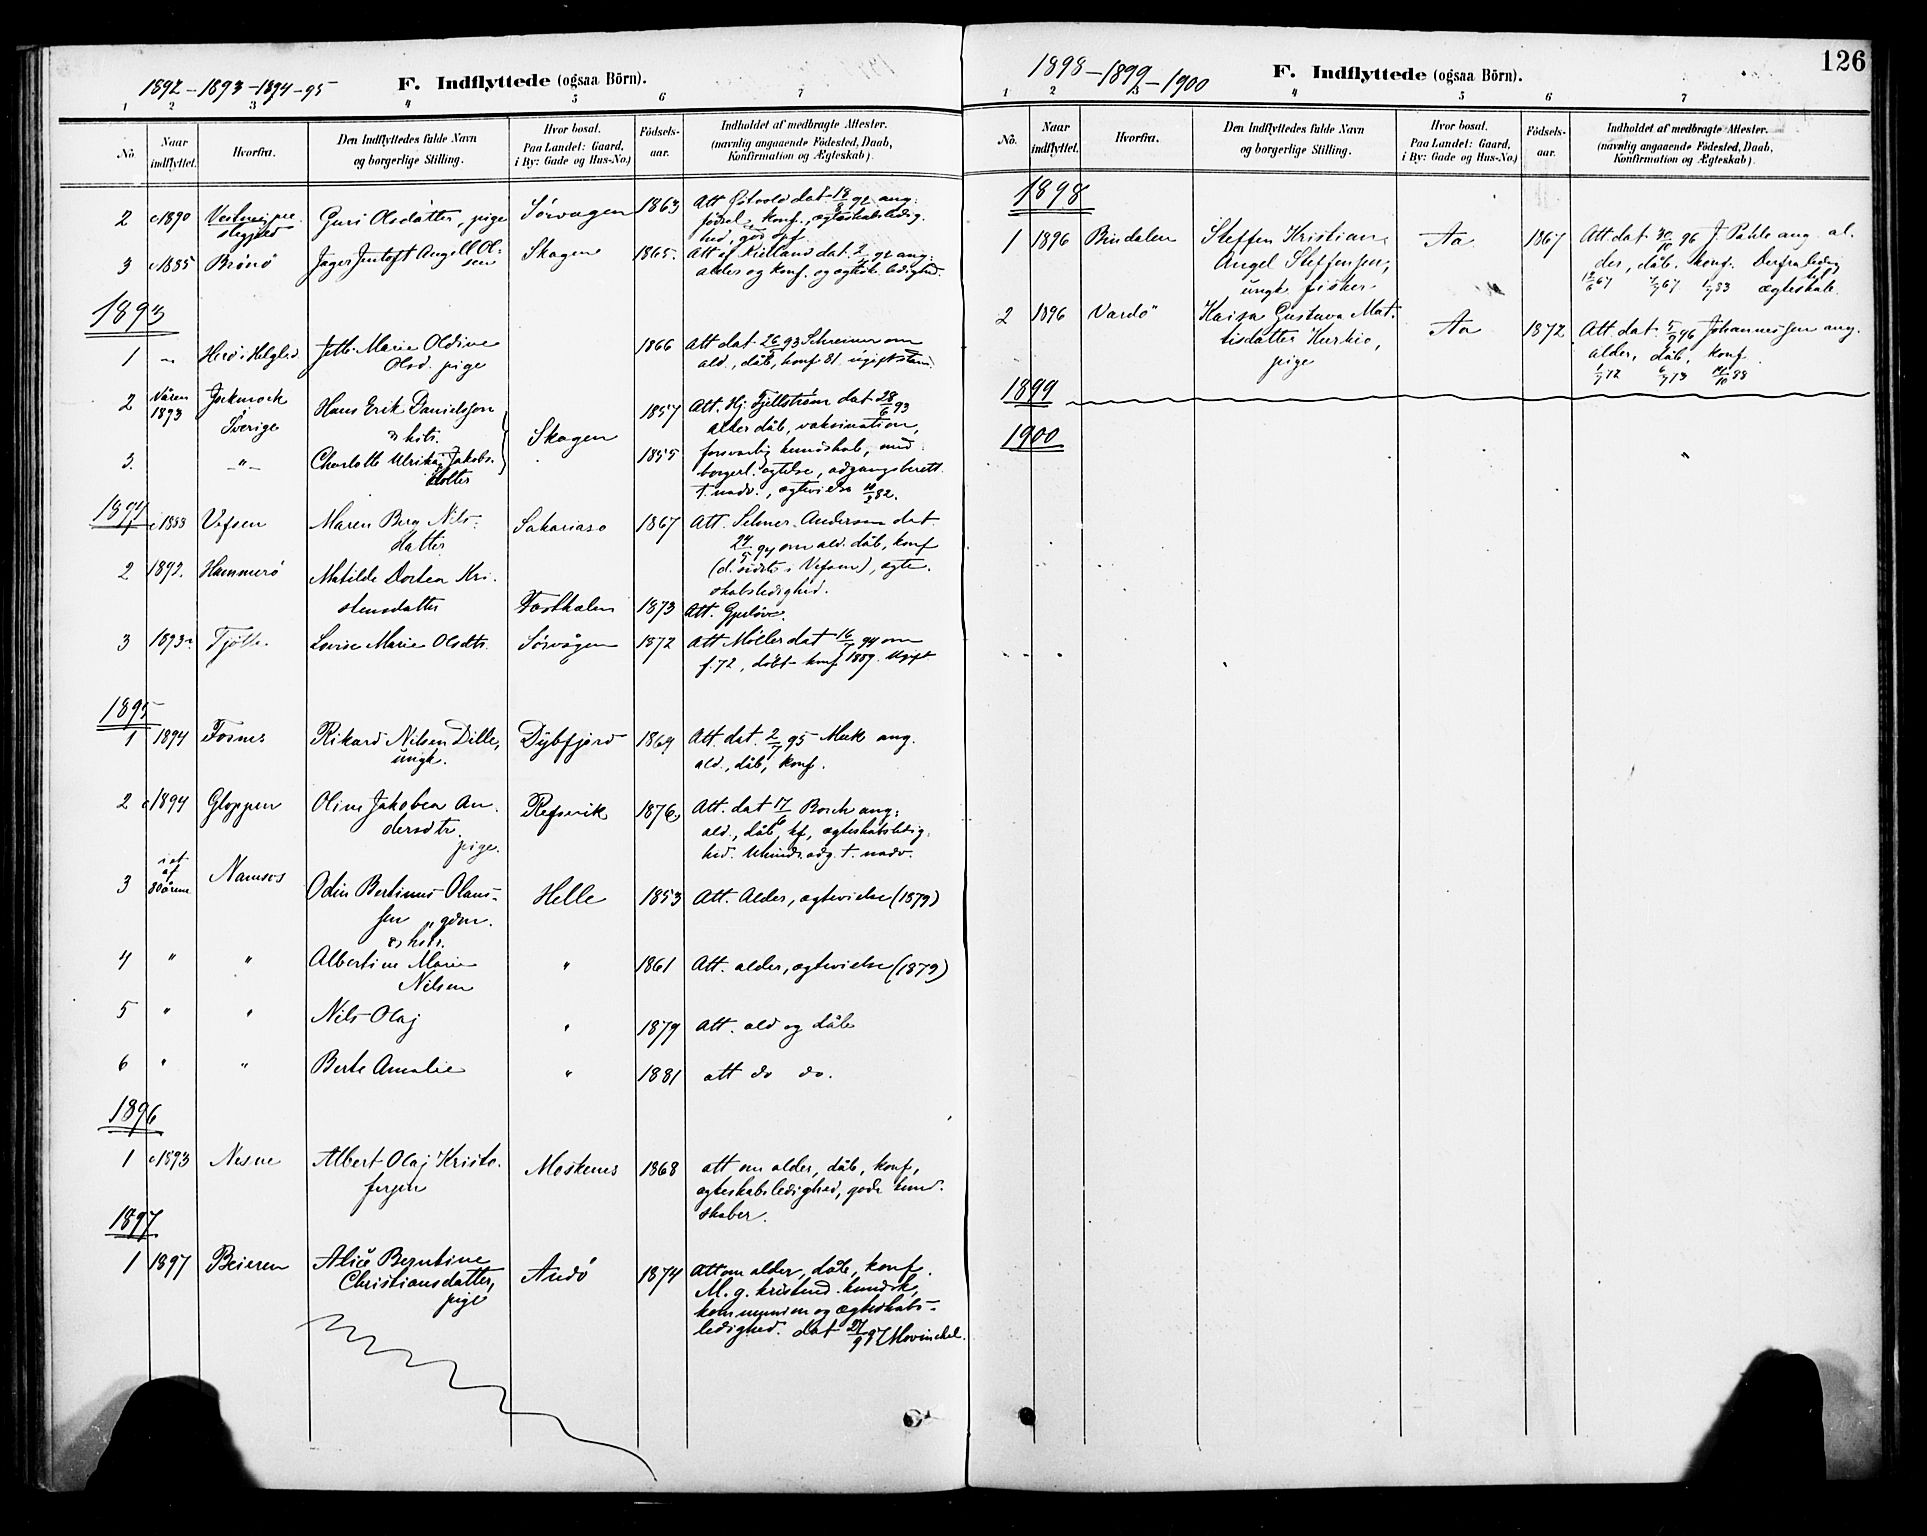 1892-1893-1894-95
F. Indflyttede (ogsaa Börn).
1 2 3 4 5 6 7
No.
Naar indflyttet.
Hvorfra.
Den Indflyttedes fulde Navn
og borgerlige Stilling.
Hvor bosat.
Paa Landet: Gaard,
i By: Gade og Hus-No.)
Födsels-
aar.
Indholdet af medbragte Attester.
(navnlig angaaende Födested, Daab,
Konfirmation og Ægteskab).
2 c1890 Guri Olsdatter, pige Sørvagen 1863 Att Østvold dat 18/8 92 ang.
fødsel, konf., ægteskabsledig-
hed, god opf.
3 c1885 Brønø Jager Jentoft Angell Ol-
sen Skagen 1865. Att af Kielland dat 2/ 92 ang.
alder og konf. og ægtesk. ledighed.
1893
1 " Herø i Helgel. Jette Marie Oldine
Olsd. pige 1866 Att dat 26/ 93 Schreiner om
ald., dåb, konf 81, ugift stand.
2 Våren
1893 Jockmock
Sverige Hans Erik Danielssen
& hstr. Skagen 1857 Att. Hj. Fjellström dat 28/6 93
alder dåb, vaksination,
3. -"- Charlotte Ulrika Jakobs-
dotter 1855 forsvarlig kundskab, med-
borgerl. agtelse, adgangsberett.
t. nadv., ægtevielse 82.
1894
c1883 Vefsen Maren Berg Nils-
datter Sakariasø 1867 Att. Selmer-Anderssen dat
24/5 94 om ald. dåb, konf
(d. sidste i Vefsen), ægte-
skabsledighed.
2 1892. Hammerø Matilde Dortea Kri-
stensdatter 1873 Att. Gjeløv.
3 1893 Tjøtta. Lovise Marie Olsdtr. Sørvågen 1872 Att Møller dat 16/ 94 om
f. 72, døbt konf 1889. Ugift
1895
1 1894 Fosnes Rikard Nilsen Dille,
ungk. Dybfjord 1869 Att. dat. 2/7 95 Muk ang.
ald., dåb, konf.
2 c1894 Gloppen Oline Jakobea An-
dersdtr.
pige. Refsvik 1876 Att. dat 17/6 Bosch ang.
ald., dåb, kf, ægteskabsledig-
hed. Uhindr. adg. t. nadv.
3 i et
af
80 årene Namsos Odin Bertinus Olaus-
sen, gdm.
& hstr. Helle 1853 Att. Alder, ægtevielse (1879)
4 " " Albertine Marie
Nilsen " 1861 Att. alder, ægtevielse (1879)
5 " " Nils Olaj " 1879 Att. ald og dåb
6 " " Berte Amalie " 1881 att do do.
1896
1 c1893 Nesne Albert Olaj Kristo-
fersen Moskenes 1868 att om alder, dåb, konf,
ægteskabsledighed, gode kund-
skaber.
1897
1 1897 Beieren Alice Berntine
Christiansdatter,
pige Andø 1874 Att om alder, dåb, konf.
M. g. kristend. kundsk,
kommunion og ægteskabs-
ledighed. dat 27/9 97 Movinckel.
126
1898-1899-1900
F. Indflyttede (ogsaa Börn).
1 2 3 4 5 6 7
No.
Naar
indflyttet.
Hvorfra.
Den Indflyttedes fulde Navn
og borgerlige Stilling.
Hvor bosat.
Paa Landet: Gaard,
i By: Gade og Hus-No.)
Födsels-
aar.
Indholdet af medbragte Attester.
(navnlig angaaende Födested, Daab,
Konfirmation og Ægteskab).
1898
1 1896 Bindalen Steffen Kristian
Angel Steffensen,
ungk. fisker Aa 1867 Att. dat 30/10 96 J. Pahle ang. al-
der, dåb. konf. Derfra ledig
67 67 83 til ægteskab.
2 1896 Vardö Kaisa Gustava Mat-
tisdatter Kurkio,
pige Aa 1872 Att dat 5/9 96 Johannessen ang.
alder, dåb, konf.
72 73 88
1899
1900